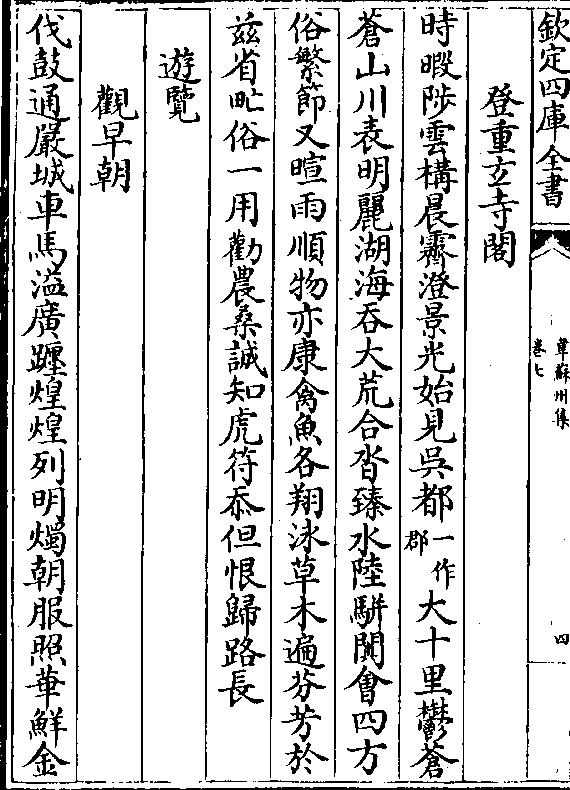 欽定四庫全書
韋蘇州集
卷七
四
登重玄寺閣
時暇陟雲構晨霽澄景光始見吳都一作郡大十里鬱蒼
蒼山川表明麗湖海吞大荒合沓臻水陸駢闐會四方
俗繁節又暄雨順物亦康禽魚各翔泳草木遍芬芳於
兹省甿俗一用勸農桑誠知虎符忝但恨歸路長
遊覽
觀早朝
伐鼓通嚴城車馬溢廣躔煌煌列明燭朝服照華鮮金